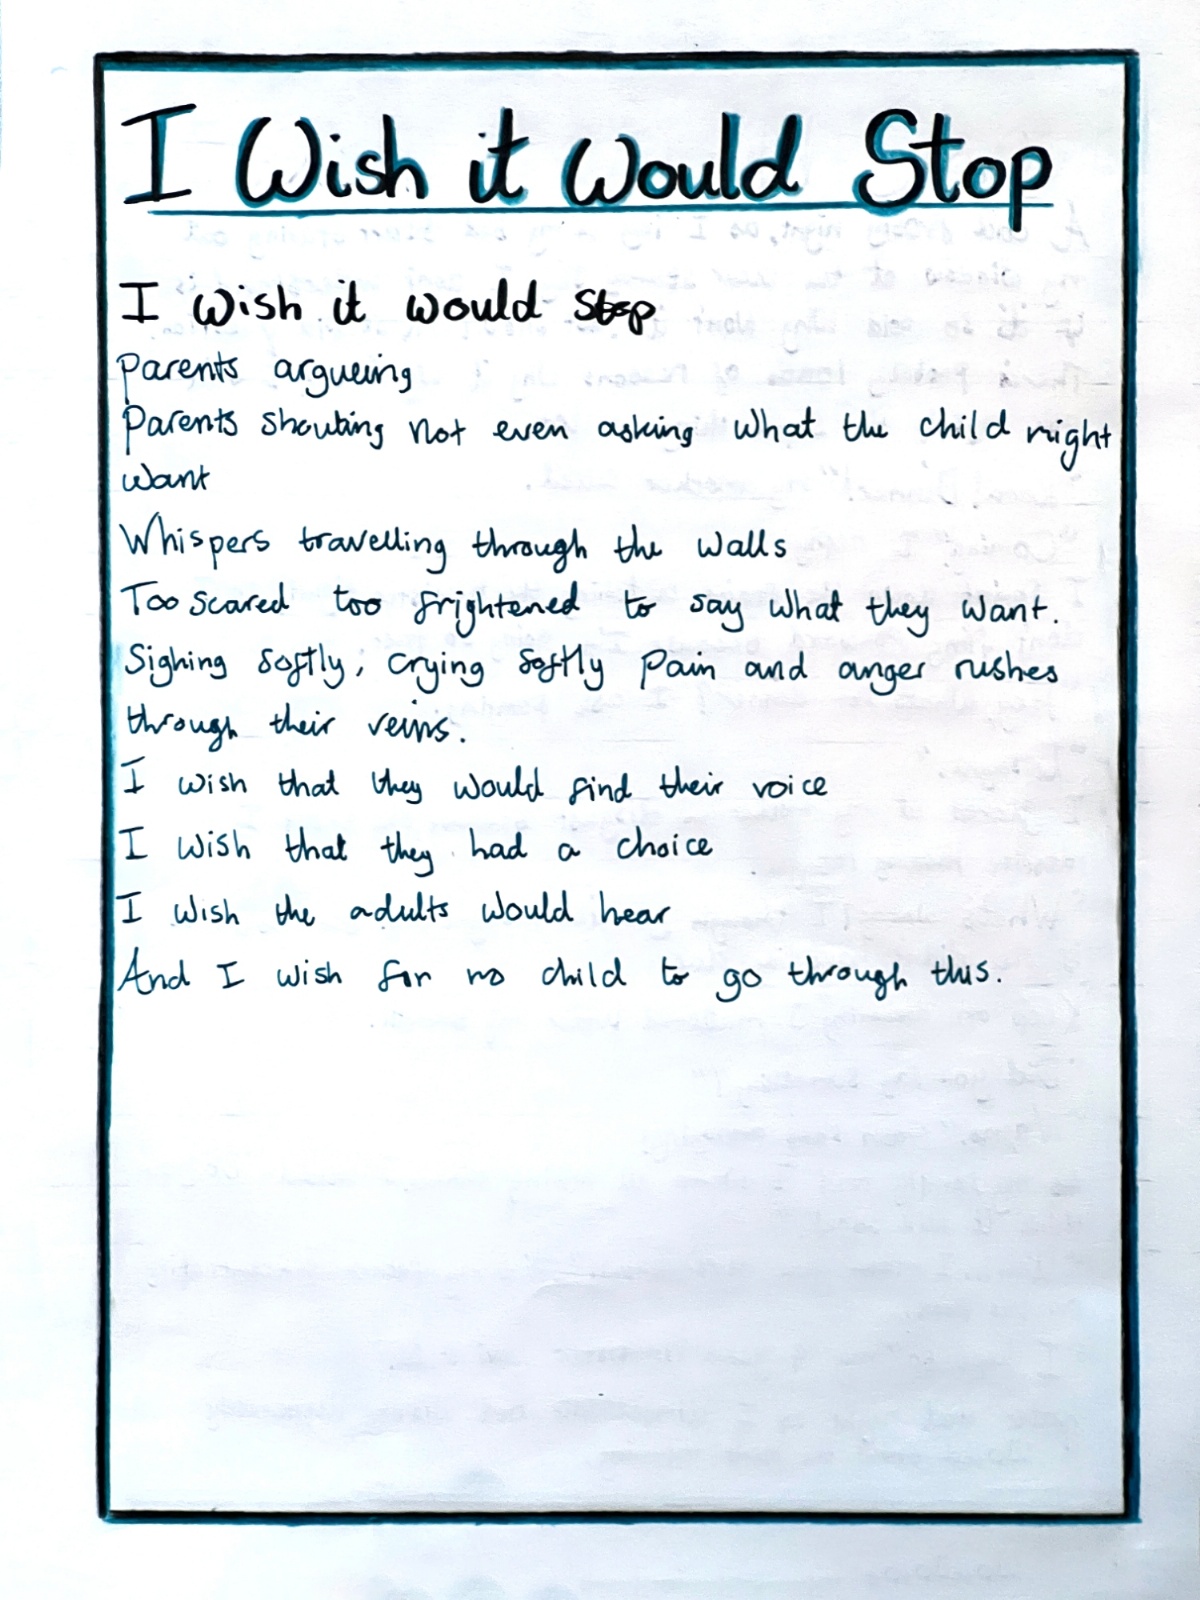 I Wish it Would Stop
I wish it would stop
Parents argueing
Parents shouting not even asking what the child might
want
Whispers travelling through the walls
Too scared too frightened to say what they want.
Sighing softly, crying softly Pain and anger rushes
through their veins.
I wish that they would find their voice
I wish that they had a choice
I wish the adults would hear
And I wish for no child to go through this.